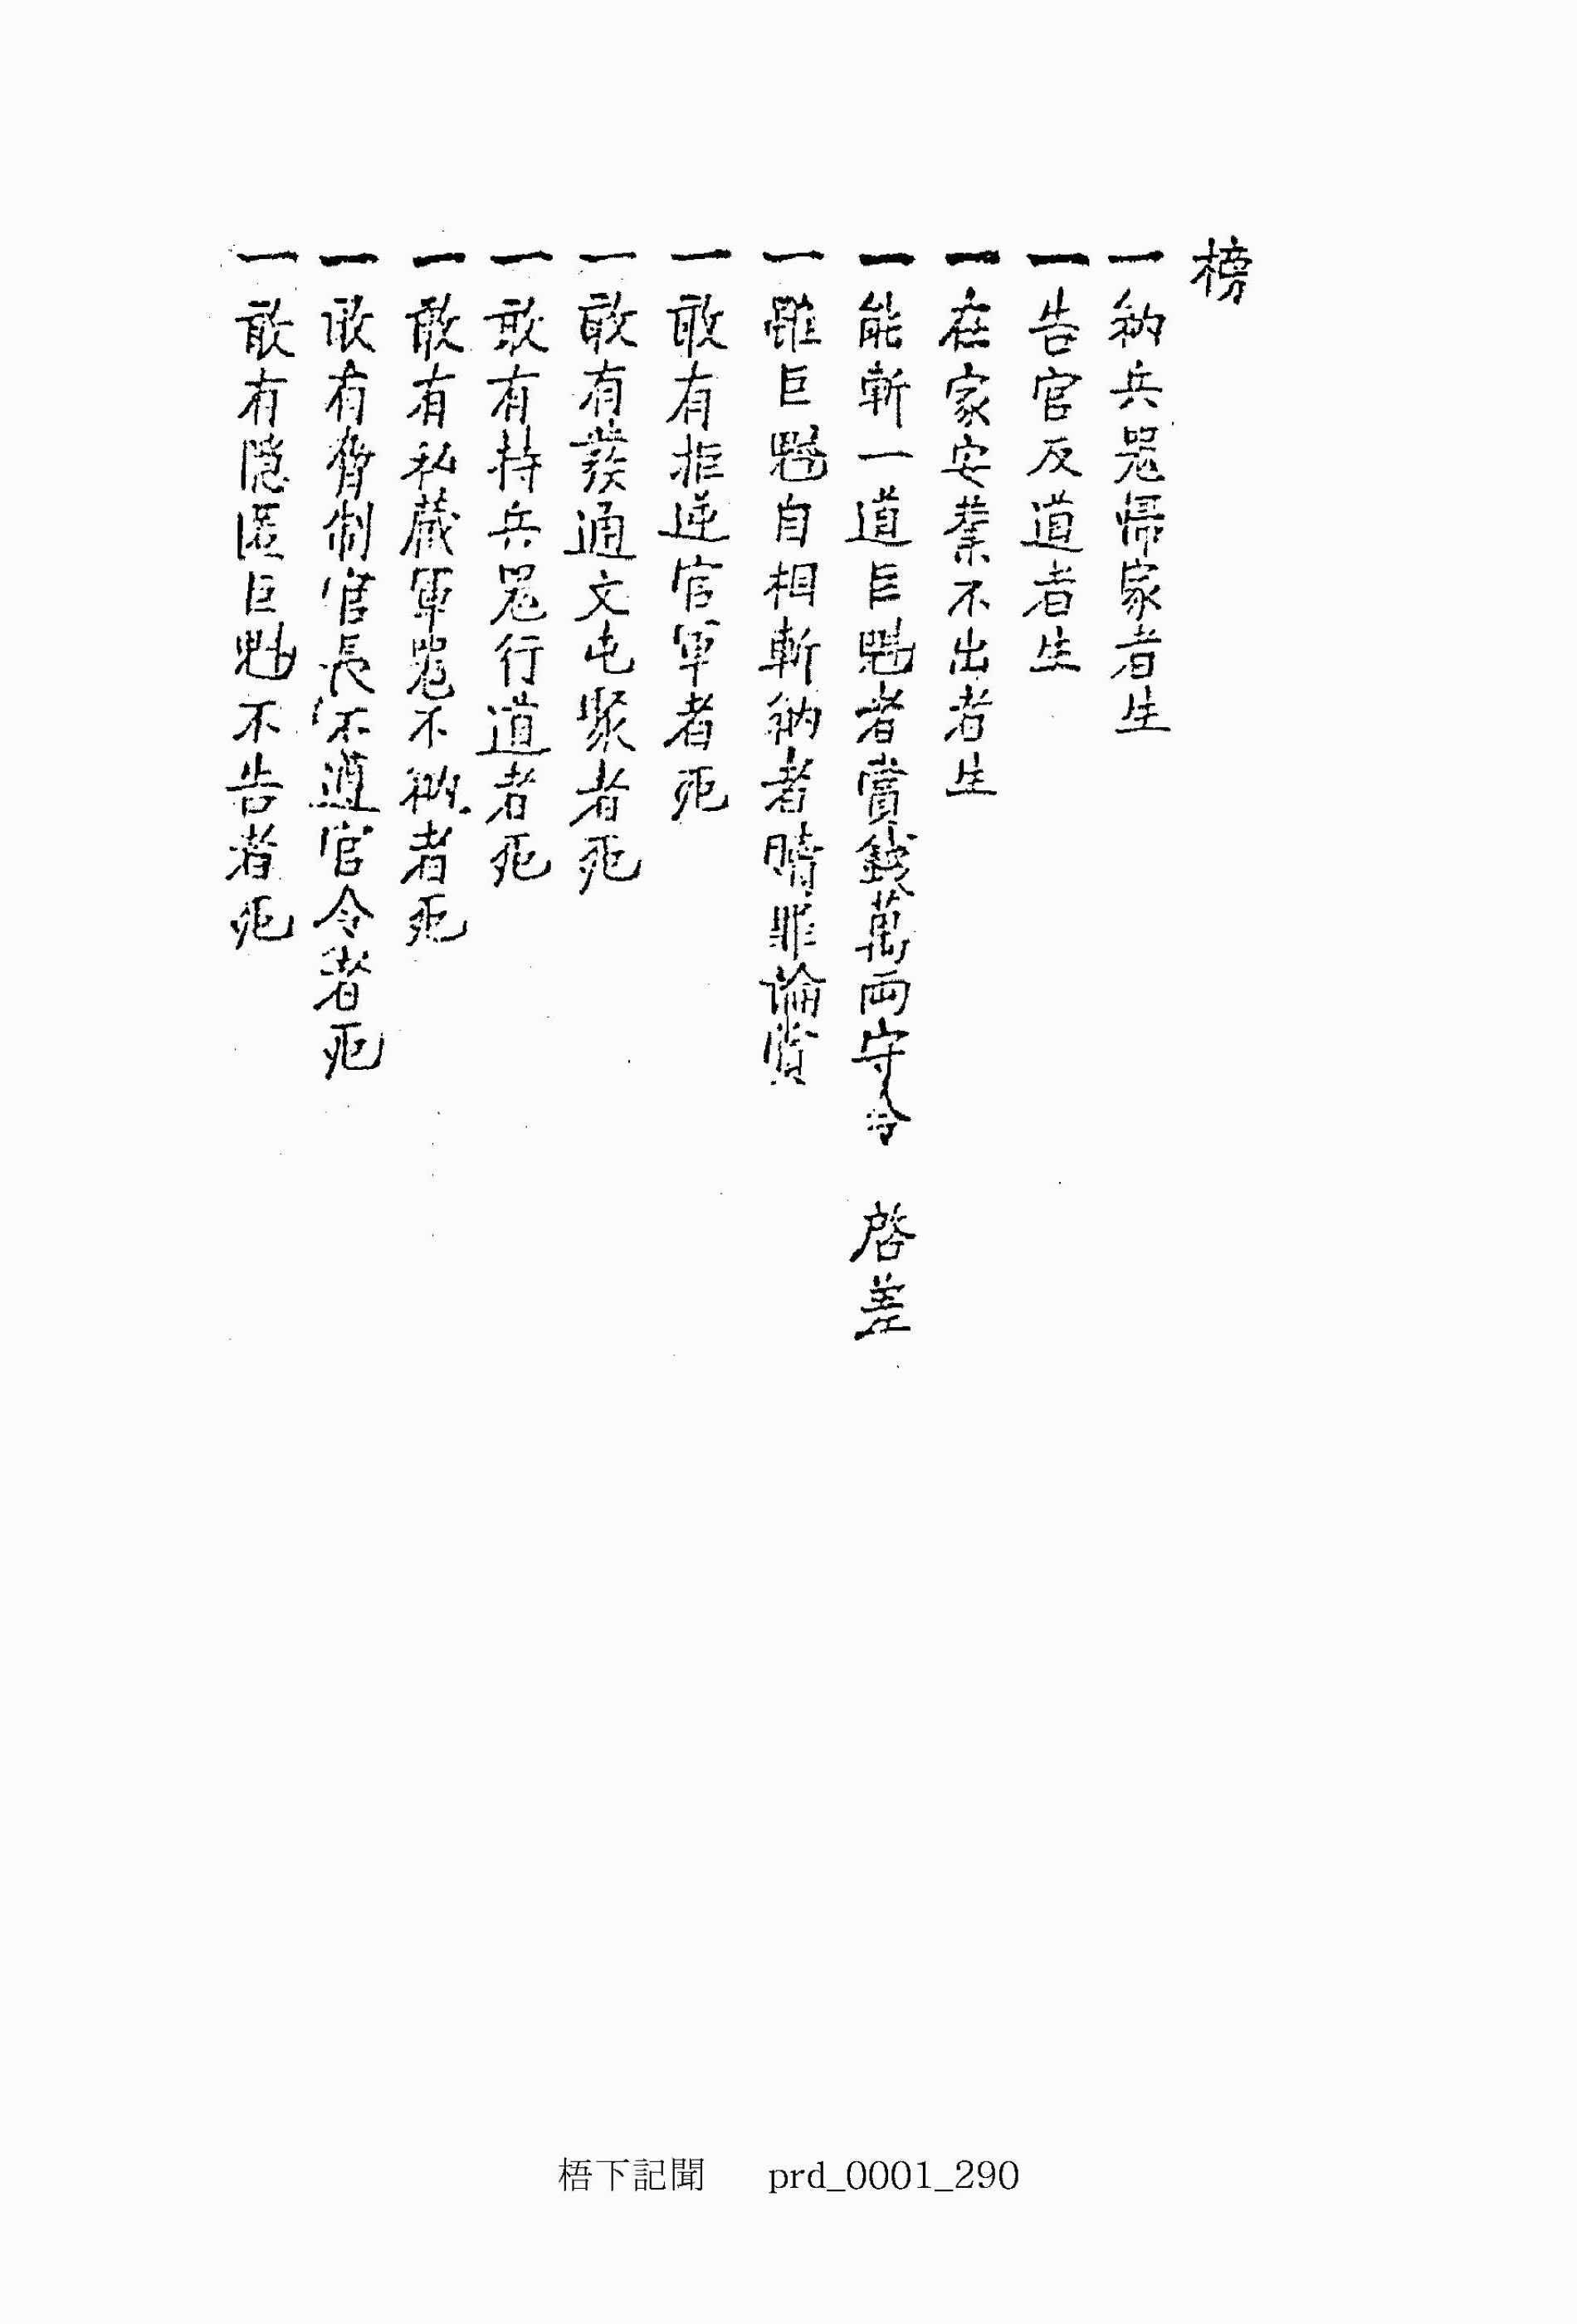 榜
一 納兵器歸家者生
一 告官反道者生
一 在家安業不出者生
一 能斬一道巨魁者賞錢萬兩守令 啓差
一 雖巨魁自相斬納者贖罪論賞
一 敢有拒逆官軍者死
一 敢有發通文屯聚者死
一 敢有持兵器行道者死
一 敢有私藏軍器不納者死
一 敢有脅制官長不遵官令者死
一 敢有隱匿巨魁不告者死
梧下記聞 prd_0001_290